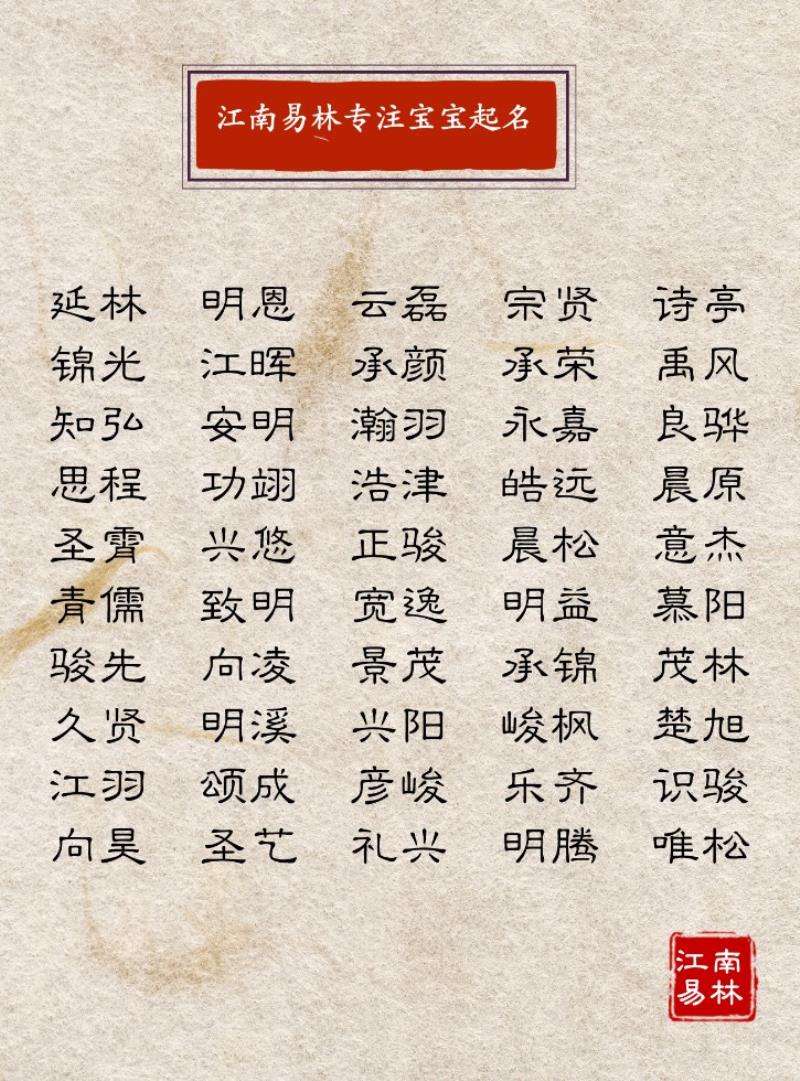 江南易林专注宝宝起名
延林 明恩 云磊 宗贤 诗亭
锦光 江晖 承颜 承荣 禹风
知弘 安明 瀚羽 永嘉 良骅
思程 功翊 浩津 皓远 晨原
圣霄 兴悠 正骏 晨松 意杰
青儒 致明 宽逸 明益 慕阳
骏先 向凌 景茂 承锦 茂林
久贤 明溪 兴阳 峻枫 楚旭
江羽 颂成 彦峻 乐齐 识骏
向昊 圣艺 礼兴 明腾 唯松
江南
易林